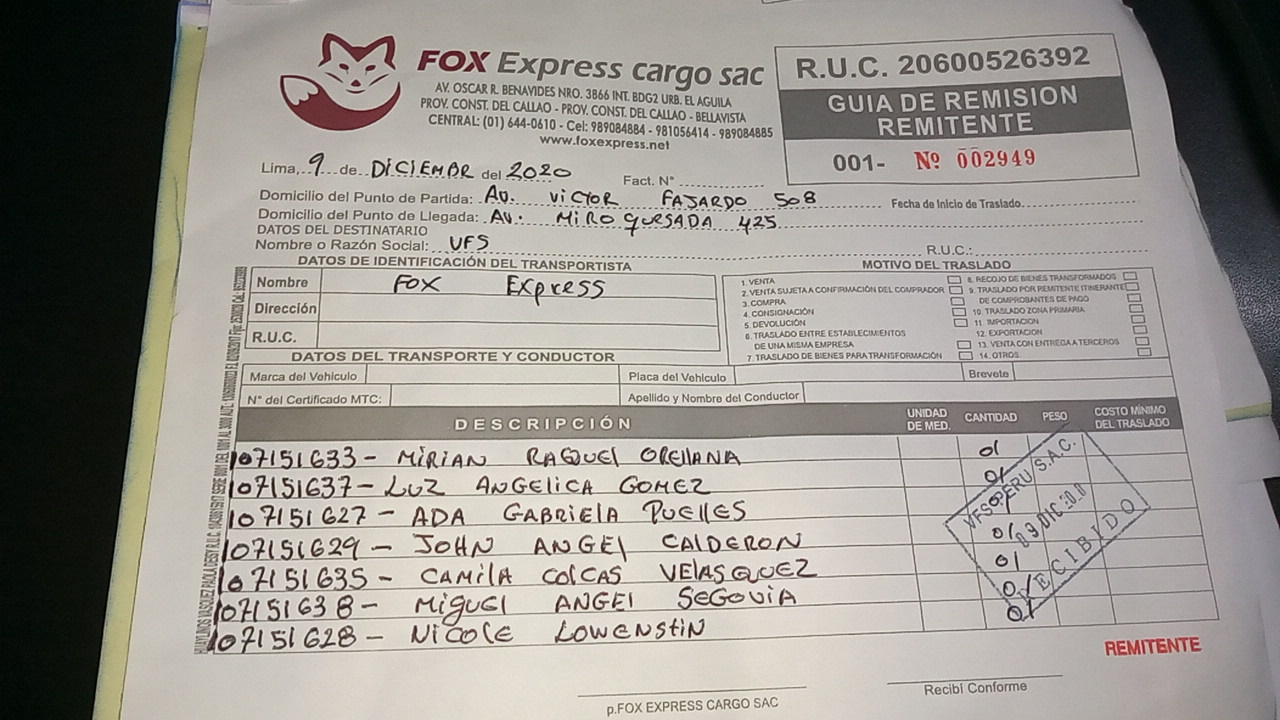 FOX Express cargo sac
AV. OSCAR R. BENAVIDES NRO. 3866 INT. BDG2 URB. EL AGUILA
PROV. CONST. DEL CALLAO - PROV. CONST. DEL CALLAO - BELLAVISTA
CENTRAL: (01) 644-0610 - Cel: 989084884 - 981056414 - 989084885
www.foxexpress.net
R.U.C. 20600526392
GUIA DE REMISION
REMITENTE
001- Nº 002949
Lima, 9 de DICIEMBR del 2020 Fact. N°
Domicilio del Punto de Partida: AV. VICTOR FAJARDO 508 Fecha de Inicio de Traslado
Domicilio del Punto de Llegada: AV. MIRO QUESADA 425
DATOS DEL DESTINATARIO
Nombre o Razón Social: VFS R.U.C.:
DATOS DE IDENTIFICACIÓN DEL TRANSPORTISTA
Nombre FOX Express
Dirección
R.U.C.
MOTIVO DEL TRASLADO
1. VENTA
2. VENTA SUJETA A CONFIRMACIÓN DEL COMPRADOR
3. COMPRA
4. CONSIGNACIÓN
5. DEVOLUCIÓN
6. TRASLADO ENTRE ESTABLECIMIENTOS
DE UNA MISMA EMPRESA
7. TRASLADO DE BIENES PARA TRANSFORMACIÓN
8. RECOJO DE BIENES TRANSFORMADOS
9. TRASLADO POR REMITENTE ITINERANTE
DE COMPROBANTES DE PAGO
10. TRASLADO ZONA PRIMARIA
11. IMPORTACION
12. EXPORTACION
13. VENTA CON ENTREGA A TERCEROS
14. OTROS
DATOS DEL TRANSPORTE Y CONDUCTOR
Marca del Vehículo Placa del Vehículo Brevete
N° del Certificado MTC: Apellido y Nombre del Conductor
DESCRIPCIÓN UNIDAD DE MED. CANTIDAD PESO COSTO MÍNIMO DEL TRASLADO
107151633 - MIRIAN RAQUEL ORELLANA 01
107151637 - LUZ ANGELICA GOMEZ 01
107151627 - ADA GABRIELA PUELLES
107151629 - JOHN ANGEL CALDERON 01
107151635 - CAMILA COLCAS VELASQUEZ 01
107151638 - MIGUEL ANGEL SEGOVIA 01
107151628 - NICOLE LOWENSTIN 01
VFS PERU S.A.C.
RECIBIDO
REMITENTE
p.FOX EXPRESS CARGO SAC
Recibí Conforme